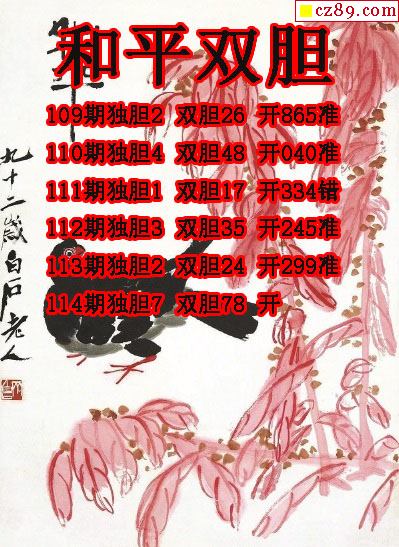 cz89.com
和平双胆
109期独胆2 双胆26 开865准
110期独胆4 双胆48 开040准
111期独胆1 双胆17 开334错
112期独胆3 双胆35 开245准
113期独胆2 双胆24 开299准
114期独胆7 双胆78 开
九十二岁白石老人